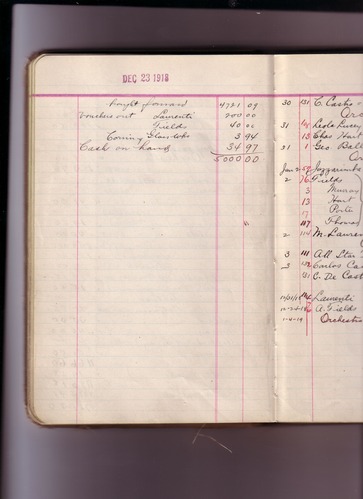 DEC 23 1918
brought forward 4721 09
Vouchers out Laurenti 200 00
Fields 40 00
Corning Glass Wks 3 94
Cash on hand 34 97
5000 00
30 131 C. Castro
31 Leola Lucey
13 Chas Hart
21 1 Geo Ball
Jan 2 57 Jazzarimba
2 76 Fields
3 Murray
13 Hart
17 Porter
117 Thomas
2 114 M. Lauren
3 111 All Star
3 Carlos Cas
131 C. De Cast
Laurenti
A. Fields
1-4-19 Orchestra